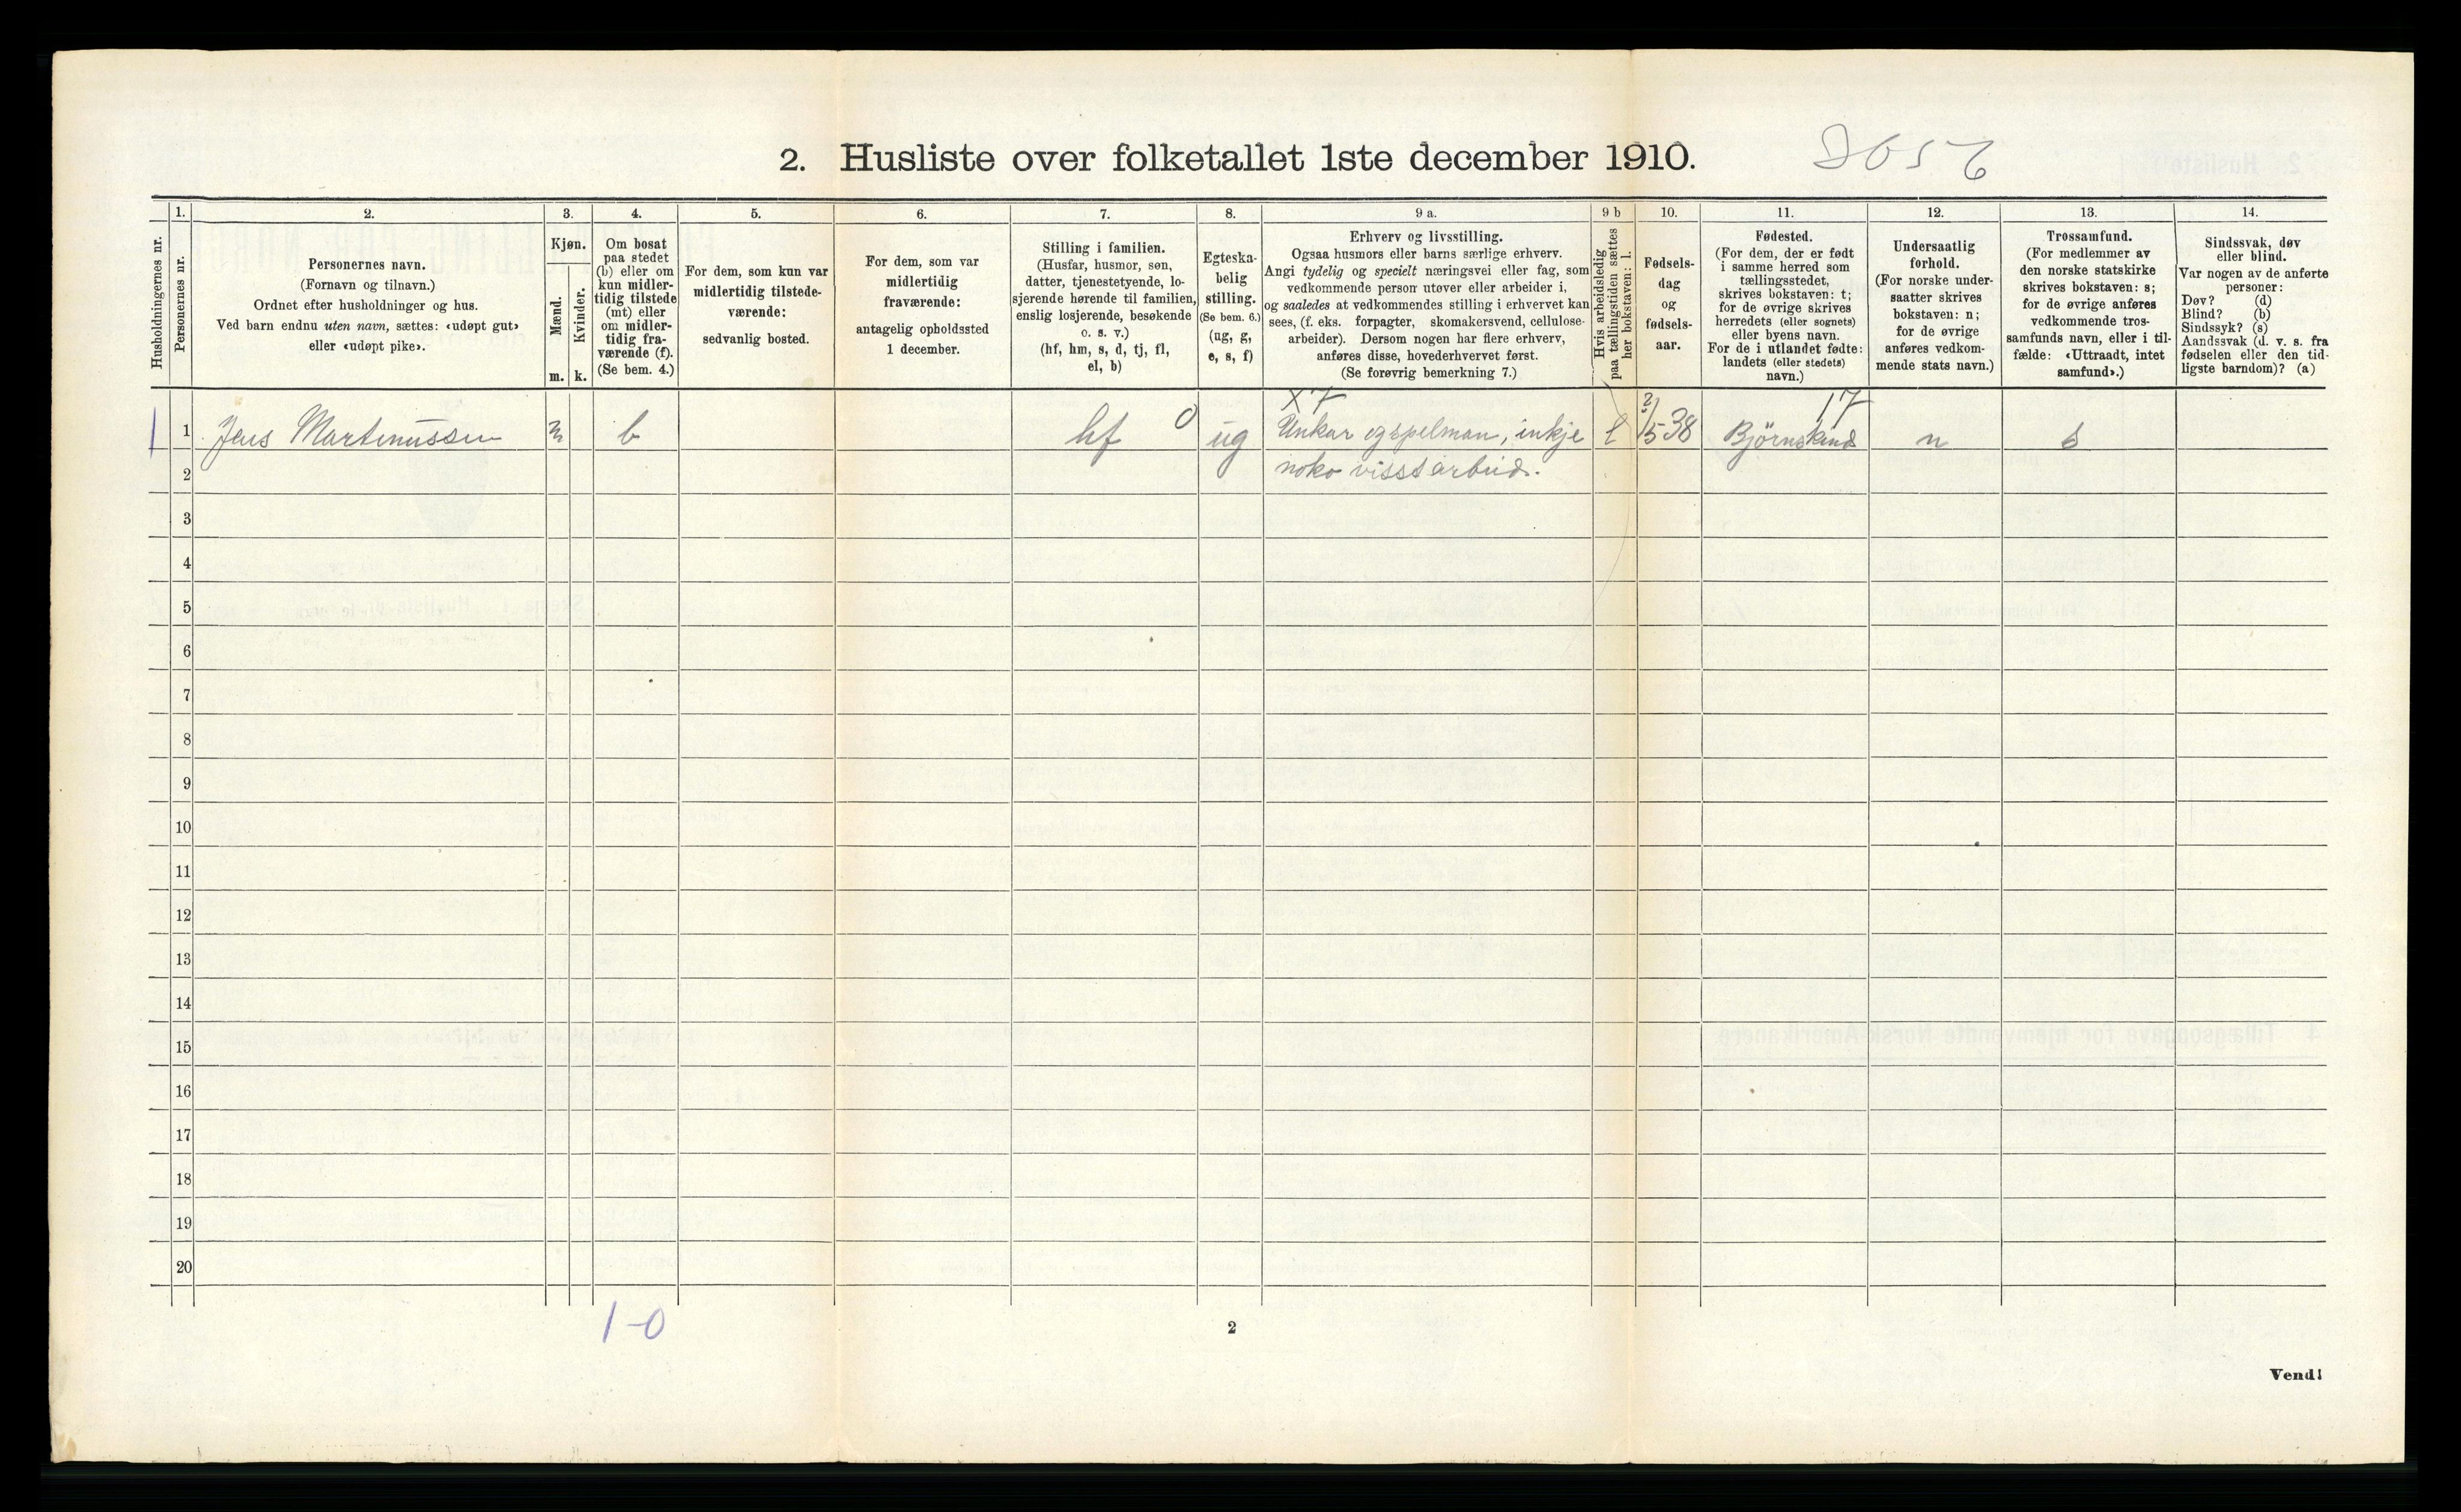 2. Husliste over folketallet 1ste december 1910.
Husholdningernes nr.
1.
Personernes nr.
2.
Personernes navn.
(Fornavn og tilnavn.)
Ordnet efter husholdninger og hus.
Ved barn endnu uten navn, sættes: «udøpt gut»
eller «udøpt pike».
3.
Kjøn.
Mænd.
Kvinder.
m. k.
4.
Om bosat
paa stedet
(b) eller om
kun midler-
tidig tilstede
(mt) eller
om midler-
tidig fra-
værende (f).
(Se bem. 4.)
5.
For dem, som kun var
midlertidig tilstede-
værende:
sedvanlig bosted.
6.
For dem, som var
midlertidig
fraværende:
antagelig opholdssted
1 december.
7.
Stilling i familien.
(Husfar, husmor, søn,
datter, tjenestetyende, lo-
sjerende hørende til familien,
enslig losjerende, besøkende
o. s. v.)
(hf, hm, s, d, tj, fl,
el, b)
8.
Egteska-
belig
stilling.
(Se bem. 6.)
(ug, g,
e, s, f)
9 a.
Erhverv og livsstilling.
Ogsaa husmors eller barns særlige erhverv.
Angi tydelig og specielt næringsvei eller fag, som
vedkommende person utøver eller arbeider i,
og saaledes at vedkommendes stilling i erhvervet kan
sees, (f. eks. forpagter, skomakersvend, cellulose-
arbeider). Dersom nogen har flere erhverv,
anføres disse, hovederhvervet først.
(Se forøvrig bemerkning 7.)
9 b
Hvis arbeidsledig
paa tællingstiden sættes
her bokstaven: l.
10.
Fødsels-
dag
og
fødsels-
aar.
11.
Fødested.
(For dem, der er født
i samme herred som
tællingsstedet,
skrives bokstaven: t;
for de øvrige skrives
herredets (eller sognets)
eller byens navn.
For de i utlandet fødte:
landets (eller stedets)
navn.)
12.
Undersaatlig
forhold.
(For norske under-
saatter skrives
bokstaven: n;
for de øvrige
anføres vedkom-
mende stats navn.)
13.
Trossamfund.
(For medlemmer av
den norske statskirke
skrives bokstaven: s;
for de øvrige anføres
vedkommende tros-
samfunds navn, eller i til-
fælde: «Uttraadt, intet
samfund».)
14.
Sindssvak, døv
eller blind.
Var nogen av de anførte
personer:
Døv? (d)
Blind? (b)
Sindssyk? (s)
Aandssvak (d. v. s. fra
fødselen eller den tid-
ligste barndom)? (a)
X7 17
1 1 Jens Martinussen m b hf 0 ug Unkar og spelman, inkje l 2/5 38 Bjørnskind n s
2 noko visst arbeid.
3
4
5
6
7
8
9
10
11
12
13
14
15
16
17
18
19
20
1-0
2
Vend!